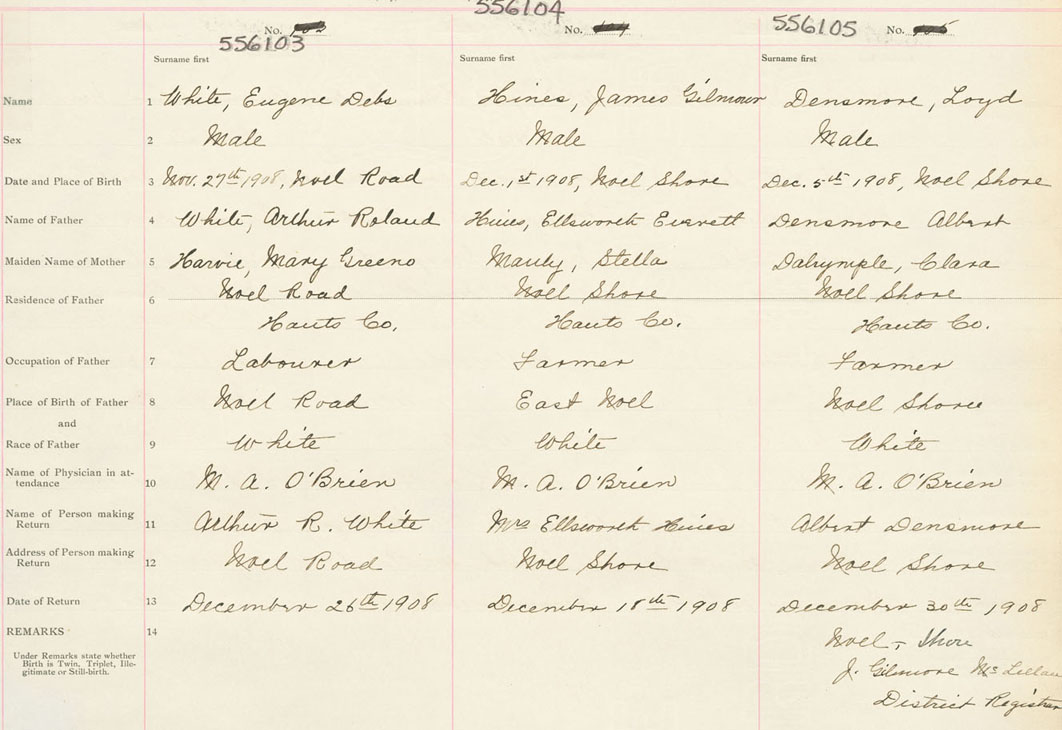 556103 556104 556105
No. No. No.
Surname first Surname first Surname first
Name 1 White, Eugene Debs Hines, James Gilmour Densmore, Loyd
Sex 2 Male Male Male
Date and Place of Birth 3 Nov. 27th 1908, Noel Road Dec. 1st 1908, Noel Shore Dec. 5th 1908, Noel Shore
Name of Father 4 White, Arthur Roland Hines, Ellsworth Everett Densmore Albert
Maiden Name of Mother 5 Harvie, Mary Greeno Stella Dalrymple, Clara
Residence of Father 6 Noel Road Noel Shore Noel Shore
Hants Co. Hants Co. Hants Co.
Occupation of Father 7 Labourer Farmer Farmer
Place of Birth of Father 8 Noel Road East Noel Noel Shore
and
Race of Father 9 White White White
Name of Physician in at-
tendance 10 M. A. O'Brien M. A. O'Brien M. A. O'Brien
Name of Person making
Return 11 Arthur R. White Mrs Ellsworth Hines Albert Densmore
Address of Person making
Return 12 Noel Road Noel Shore Noel Shore
Date of Return 13 December 26th 1908 December 18th 1908 December 30th, 1908
REMARKS 14 Noel - Shore
Under Remarks state whether
Birth is Twin, Triplet, Ille-
gitimate or Still-birth.
J. Gilmore McLellan
District Registrar